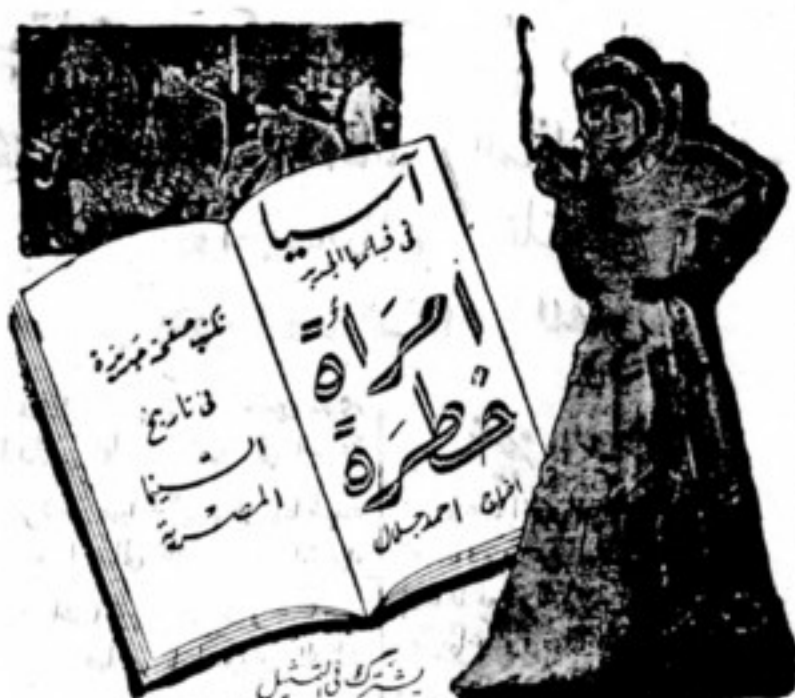 آسيا
فى فيلمها الجديد
امرأة
خطرة
اخراج احمد جلال
تكتب صفحة جديدة
فى تاريخ
السينما
المصرية
يشترك فى التمثيل